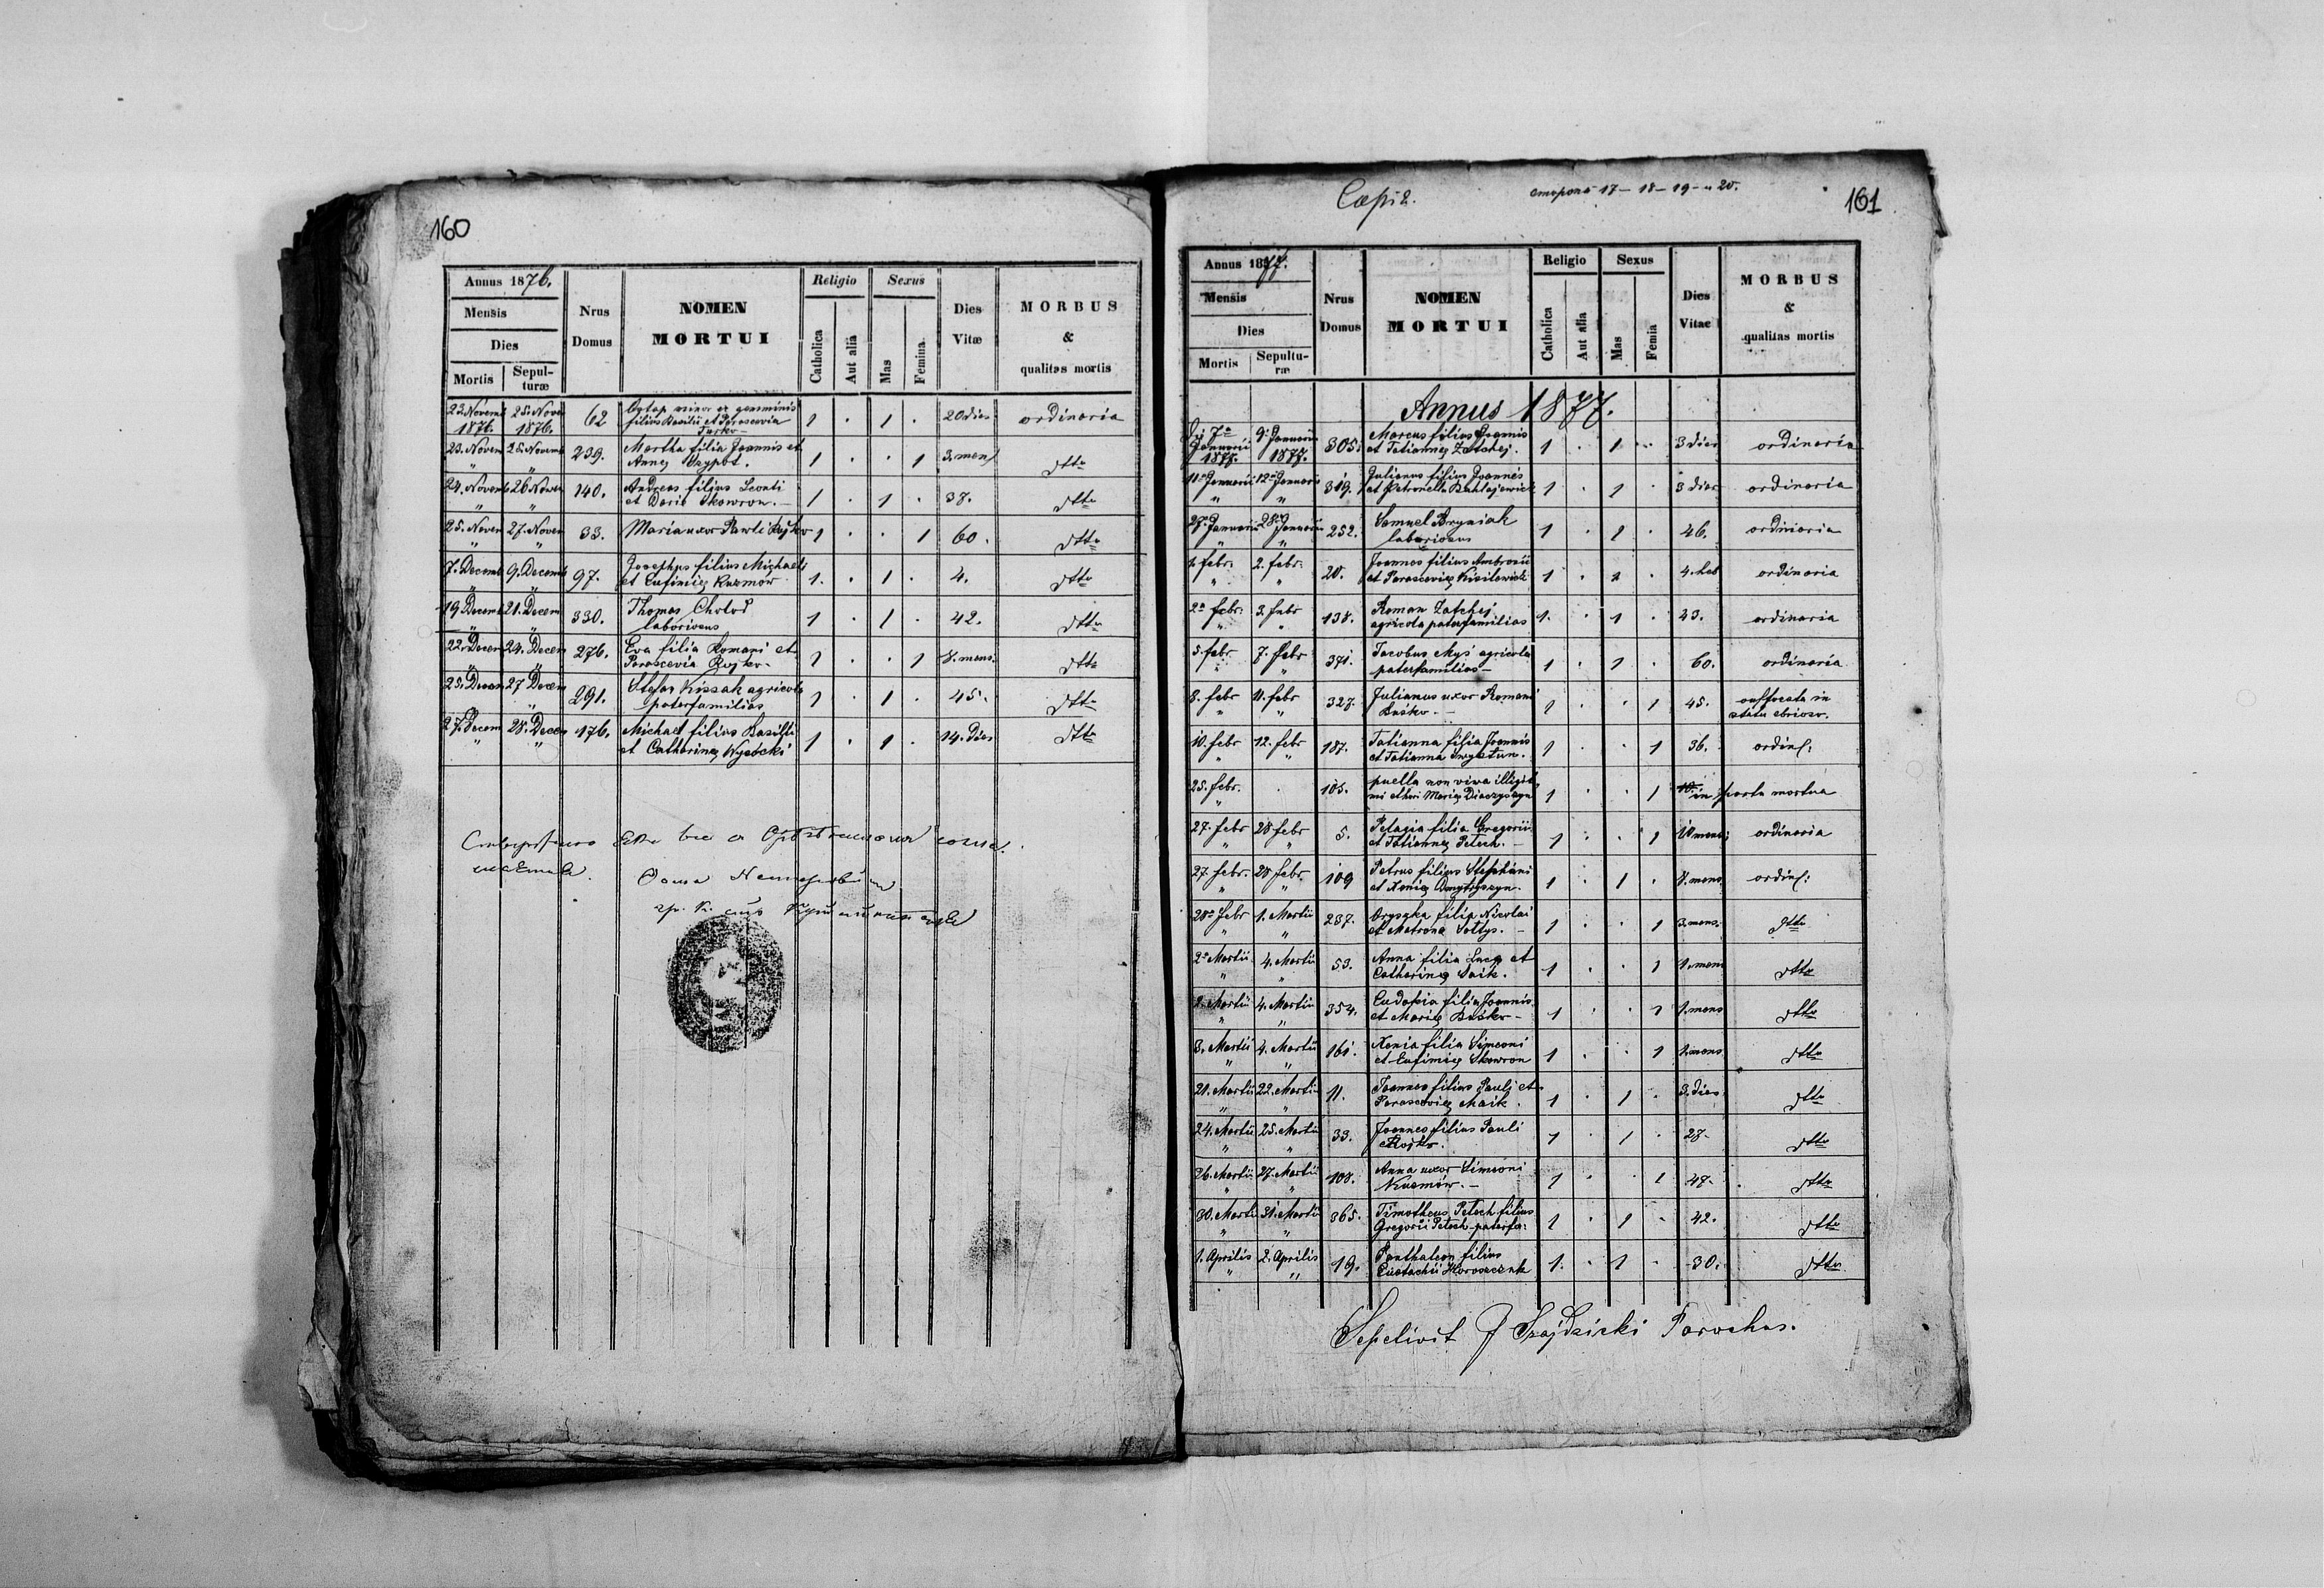 160
Annus 1876.
Mensis
Dies
Mortis
Sepulturæ
Nrus Domus
NOMEN
MORTUI
Religio
Catholica
Aut alia
Sexus
Mas
Femina
Dies Vitæ
MORBUS
&
qualitas mortis
23 Novemb 1876. 25. Nove 1876. 62 minor ex gemminis filius Basilii et Parascevia 1 . 1 . 20 dies ordinaria
23. Novem 25. Novemb 239. Martha filia Joannis et Annę 1 . . 1 3. mens dtto
24. Novemb 26 Novem 140. Andreas filius Leonti et Daria Skowron. 1 . 1 . 38. dtto
25. Novem 27. Novem 33. Maria uxor Pawli Rojko 1 . . 1 60. dtto
7. Decemb 9. Decemb 97. Josephus filius Michaeli et Eufimię Kuzmow 1. . 1 . 4. dtto
19 Decemb 21. Decem 330. Thomas Cholod laborivens 1 . 1 . 42. dtto
22. Decem 24. Decem 276. Eva filia Romani et Parascevia Rojko 1 . . 1 8. mens. dtto
25. Decem 27 Decem 291. Stefan Kissak agricola paterfamilias 1 . 1 . 45. dtto
27. Decem 28. Decem 176. Michael filius Basilii et Catharinę Wysocki 1 . 1 . 14. dies dtto
161
Copia.
сторона 17 - 18 - 19 - и 20.
Annus 1877.
Mensis
Dies
Mortis
Sepulturæ
Nrus Domus
NOMEN
MORTUI
Religio
Catholica
Aut alia
Sexus
Mas
Femia
Dies Vitae
MORBUS
&
qualitas mortis
Annus 1877.
7a Januarii 1877. 9. Januarii 1877. 305. Marcus filius Joannis et Tatiannę Zatchej. 1 . 1 . 3 dies ordinaria
11a Januarii 12a Januarii 319. Julianus filius Joannes et Petronella 1 . 1 . 3 dies ordinaria
27. Januarii 28. Januarii 252. Samuel Bryniak laborivens 1 . 1 . 46. ordinaria
1. febr. 2. febr. 20. Joannes filius Ambrosii et Parascevię Kisilewicz 1 . 1 . 4. heb ordinaria
2a febr. 3. febr 138. Roman Zatchej agricola paterfamilias 1. . 1 . 43. ordinaria
5. febr 7. febr 371. Jacobus Myś agricola paterfamilias 1 . 1 . 60. ordinaria
8. febr 11. febr 327. Julianna uxor Romani Buśko. 1 . . 1 45. suffocata in statu ebrioso.
10. febr 12. febr 187. Tatianna filia Joannis et Tatianna 1 . . 1 36. ordin:
25. febr. . 105. puella non viva illigit mi thori Marię Diaczyszyn 1 . . 1 in partu mortua
27. febr 28 febr 5. Pelagia filia Gregorii et Tatiannę Petech. 1 . . 1 10 mens ordinaria
27. febr. 28 febr 109 Petrus filius Stephani et Xenię Dmytryszyn. 1 . 1 . 8. mens ordin:
28a febr 1. Martii 237. Oryszka filia Nicolai et Matrona Soltys. 1 . . 1 3. mens. dtto
2a Martii 4. Martii 53. Anna filia Luca et Catharinę Saik. 1 . . 1 1. mens dtto
2. Martii 4. Martii 354. Eudoxia filia Joannis et Marię Buśko 1 . . 1 1. mens dtto
3. Martii 4. Martii 161. Xenia filia Simeoni et Eufimię Skowron 1 . . 1 1. mens dtto
21. Martii 22. Martii 11. Joannes filius Pauli et Parascevię Maik. 1 . 1 . 3. dies dtto
24. Martii 25. Martii 33. Joannes filius Pauli Rojko. 1 . 1 . 27. dtto
26. Martii 27. Martii 108. Anna uxor Simeoni Kuzmów. 1 . . 1 47. dtto
30. Martii 31. Martii 365. Timotheus Petech filius Gregorii Petech paterfa: 1 . 1 . 42. dtto
1. Aprilis 2. Aprilis 19. Panthaleon filius Eustachii Horoszczuk 1. . 1 . 30. dtto
Sepelivit J Szajdzicki Parochus.